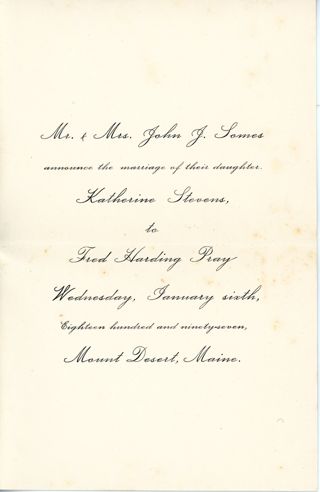 Mr. & Mrs. John J. Somes
announce the marriage of their daughter.
Katherine Stevens,
to
Fred Harding Pray
Wednesday, January sixth,
Eighteen hundred and ninety-seven,
Mount Desert, Maine.